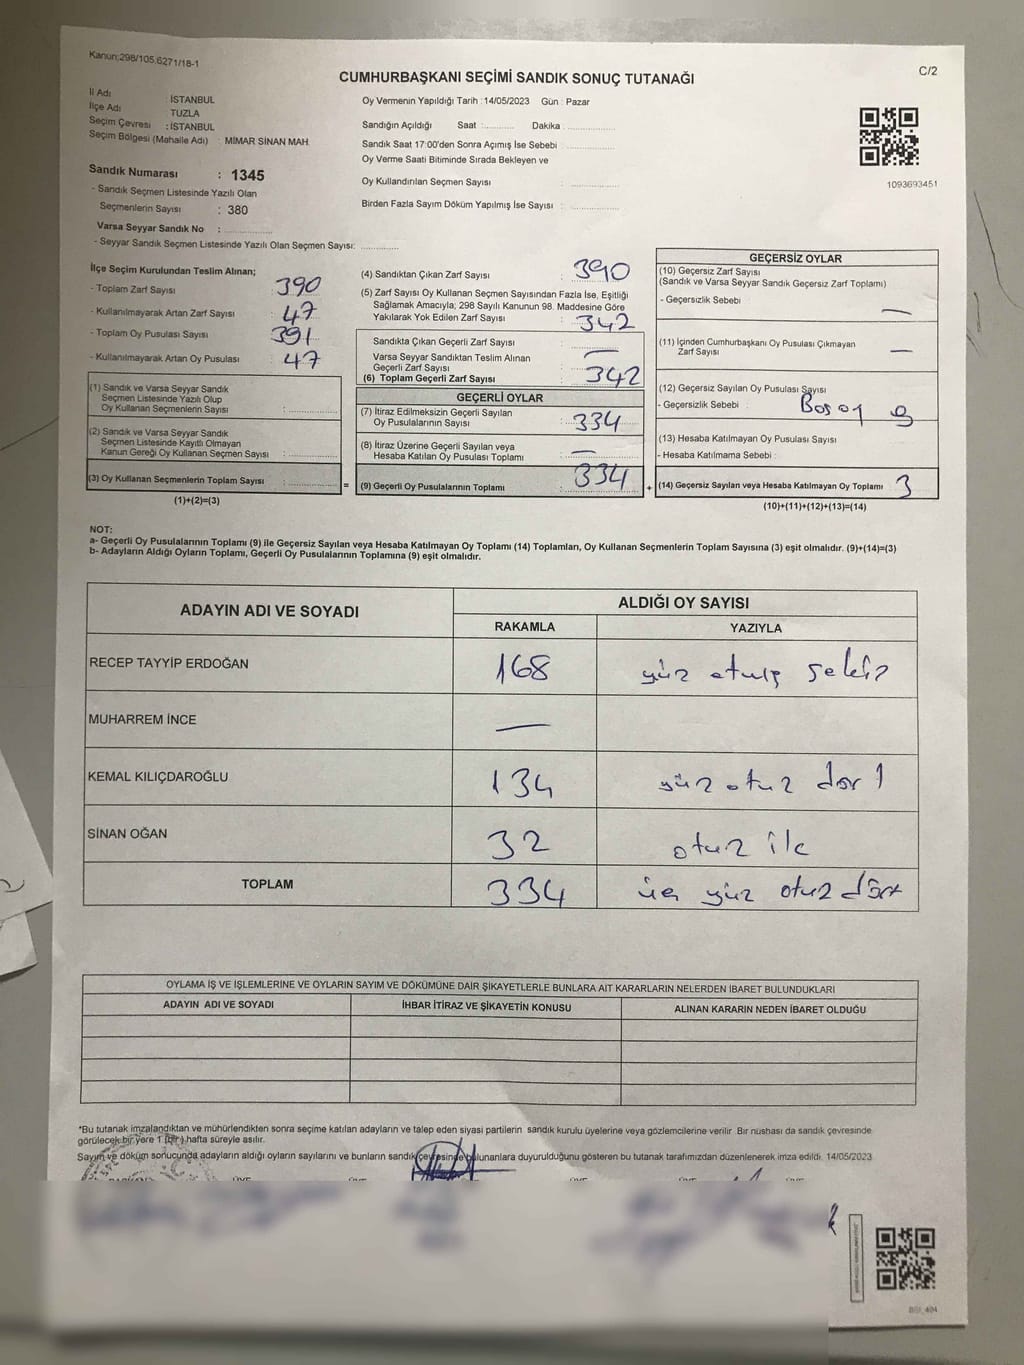 Kanun;298/105,6271/18-1
C/2
CUMHURBAŞKANI SEÇİMİ SANDIK SONUÇ TUTANAĞI
İl Adı : İSTANBUL
İlçe Adı TUZLA
Seçim Çevresi : İSTANBUL
Seçim Bölgesi (Mahalle Adı) : MİMAR SİNAN MAH.
Sandık Numarası : 1345
- Sandık Seçmen Listesinde Yazılı Olan
Seçmenlerin Sayısı : 380
Varsa Seyyar Sandık No :
- Seyyar Sandık Seçmen Listesinde Yazılı Olan Seçmen Sayısı:
Oy Vermenin Yapıldığı Tarih : 14/05/2023 Gün : Pazar
Sandığın Açıldığı Saat : Dakika :
Sandık Saat 17:00'den Sonra Açımış İse Sebebi :
Oy Verme Saati Bitiminde Sırada Bekleyen ve
Oy Kullandırılan Seçmen Sayısı :
Birden Fazla Sayım Döküm Yapılmış İse Sayısı :
1093693451
İlçe Seçim Kurulundan Teslim Alınan;
- Toplam Zarf Sayısı : 390
- Kullanılmayarak Artan Zarf Sayısı : 47
- Toplam Oy Pusulası Sayısı : 391
- Kullanılmayarak Artan Oy Pusulası : 47
(1) Sandık ve Varsa Seyyar Sandık
Seçmen Listesinde Yazılı Olup
Oy Kullanan Seçmenlerin Sayısı :
(2) Sandık ve Varsa Seyyar Sandık
Seçmen Listesinde Kayıtlı Olmayan
Kanun Gereği Oy Kullanan Seçmen Sayısı :
(3) Oy Kullanan Seçmenlerin Toplam Sayısı : =
(1)+(2)=(3)
(4) Sandıktan Çıkan Zarf Sayısı : 390
(5) Zarf Sayısı Oy Kullanan Seçmen Sayısından Fazla İse, Eşitliği
Sağlamak Amacıyla; 298 Sayılı Kanunun 98. Maddesine Göre
Yakılarak Yok Edilen Zarf Sayısı : 342
Sandıkta Çıkan Geçerli Zarf Sayısı :
Varsa Seyyar Sandıktan Teslim Alınan
Geçerli Zarf Sayısı : —
(6) Toplam Geçerli Zarf Sayısı : 342
GEÇERLİ OYLAR
(7) İtiraz Edilmeksizin Geçerli Sayılan
Oy Pusulalarının Sayısı : 334
(8) İtiraz Üzerine Geçerli Sayılan veya
Hesaba Katılan Oy Pusulası Toplamı : —
(9) Geçerli Oy Pusulalarının Toplamı : 334 +
GEÇERSİZ OYLAR
(10) Geçersiz Zarf Sayısı
(Sandık ve Varsa Seyyar Sandık Geçersiz Zarf Toplamı)
- Geçersizlik Sebebi : —
(11) İçinden Cumhurbaşkanı Oy Pusulası Çıkmayan
Zarf Sayısı —
(12) Geçersiz Sayılan Oy Pusulası Sayısı
- Geçersizlik Sebebi :
(13) Hesaba Katılmayan Oy Pusulası Sayısı
- Hesaba Katılmama Sebebi :
(14) Geçersiz Sayılan veya Hesaba Katılmayan Oy Toplamı 3
(10)+(11)+(12)+(13)=(14)
NOT:
a- Geçerli Oy Pusulalarının Toplamı (9) ile Geçersiz Sayılan veya Hesaba Katılmayan Oy Toplamı (14) Toplamları, Oy Kullanan Seçmenlerin Toplam Sayısına (3) eşit olmalıdır. (9)+(14)=(3)
b- Adayların Aldığı Oyların Toplamı, Geçerli Oy Pusulalarının Toplamına (9) eşit olmalıdır.
ADAYIN ADI VE SOYADI ALDIĞI OY SAYISI
RAKAMLA YAZIYLA
RECEP TAYYİP ERDOĞAN 168 yüz atmış sekiz
MUHARREM İNCE —
KEMAL KILIÇDAROĞLU 134 yüz otuz dört
SİNAN OĞAN 32 otuz iki
TOPLAM 334 üç yüz otuz dört
OYLAMA İŞ VE İŞLEMLERİNE VE OYLARIN SAYIM VE DÖKÜMÜNE DAİR ŞİKAYETLERLE BUNLARA AİT KARARLARIN NELERDEN İBARET BULUNDUKLARI
ADAYIN ADI VE SOYADI İHBAR İTİRAZ VE ŞİKAYETİN KONUSU ALINAN KARARIN NEDEN İBARET OLDUĞU
*Bu tutanak imzalandıktan ve mühürlendikten sonra seçime katılan adayların ve talep eden siyasi partilerin sandık kurulu üyelerine veya gözlemcilerine verilir. Bir nüshası da sandık çevresinde
görülecek bir yere 1 (bir) hafta süreyle asılır.
Sayım ve döküm sonucunda adayların aldığı oyların sayılarını ve bunların sandık çevresinde bulunanlara duyurulduğunu gösteren bu tutanak tarafımızdan düzenlenerek imza edildi. 14/05/2023